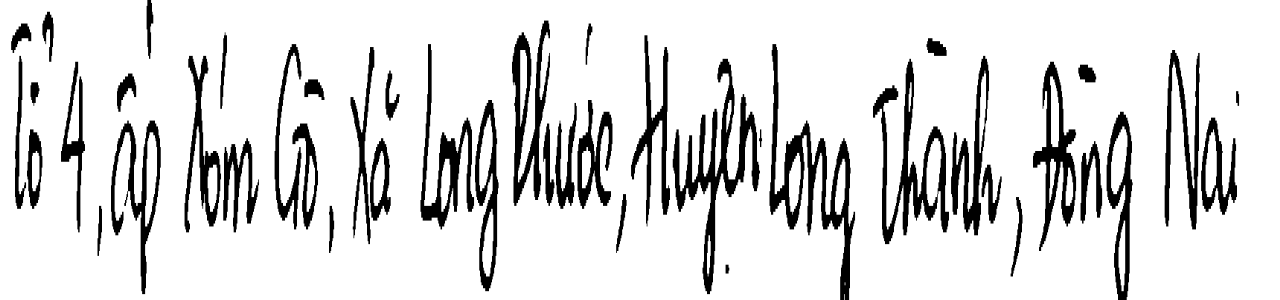 Tổ 4, ấp Xóm Gò, Xã Long Phước, Huyện Long Thành, Đồng Nai